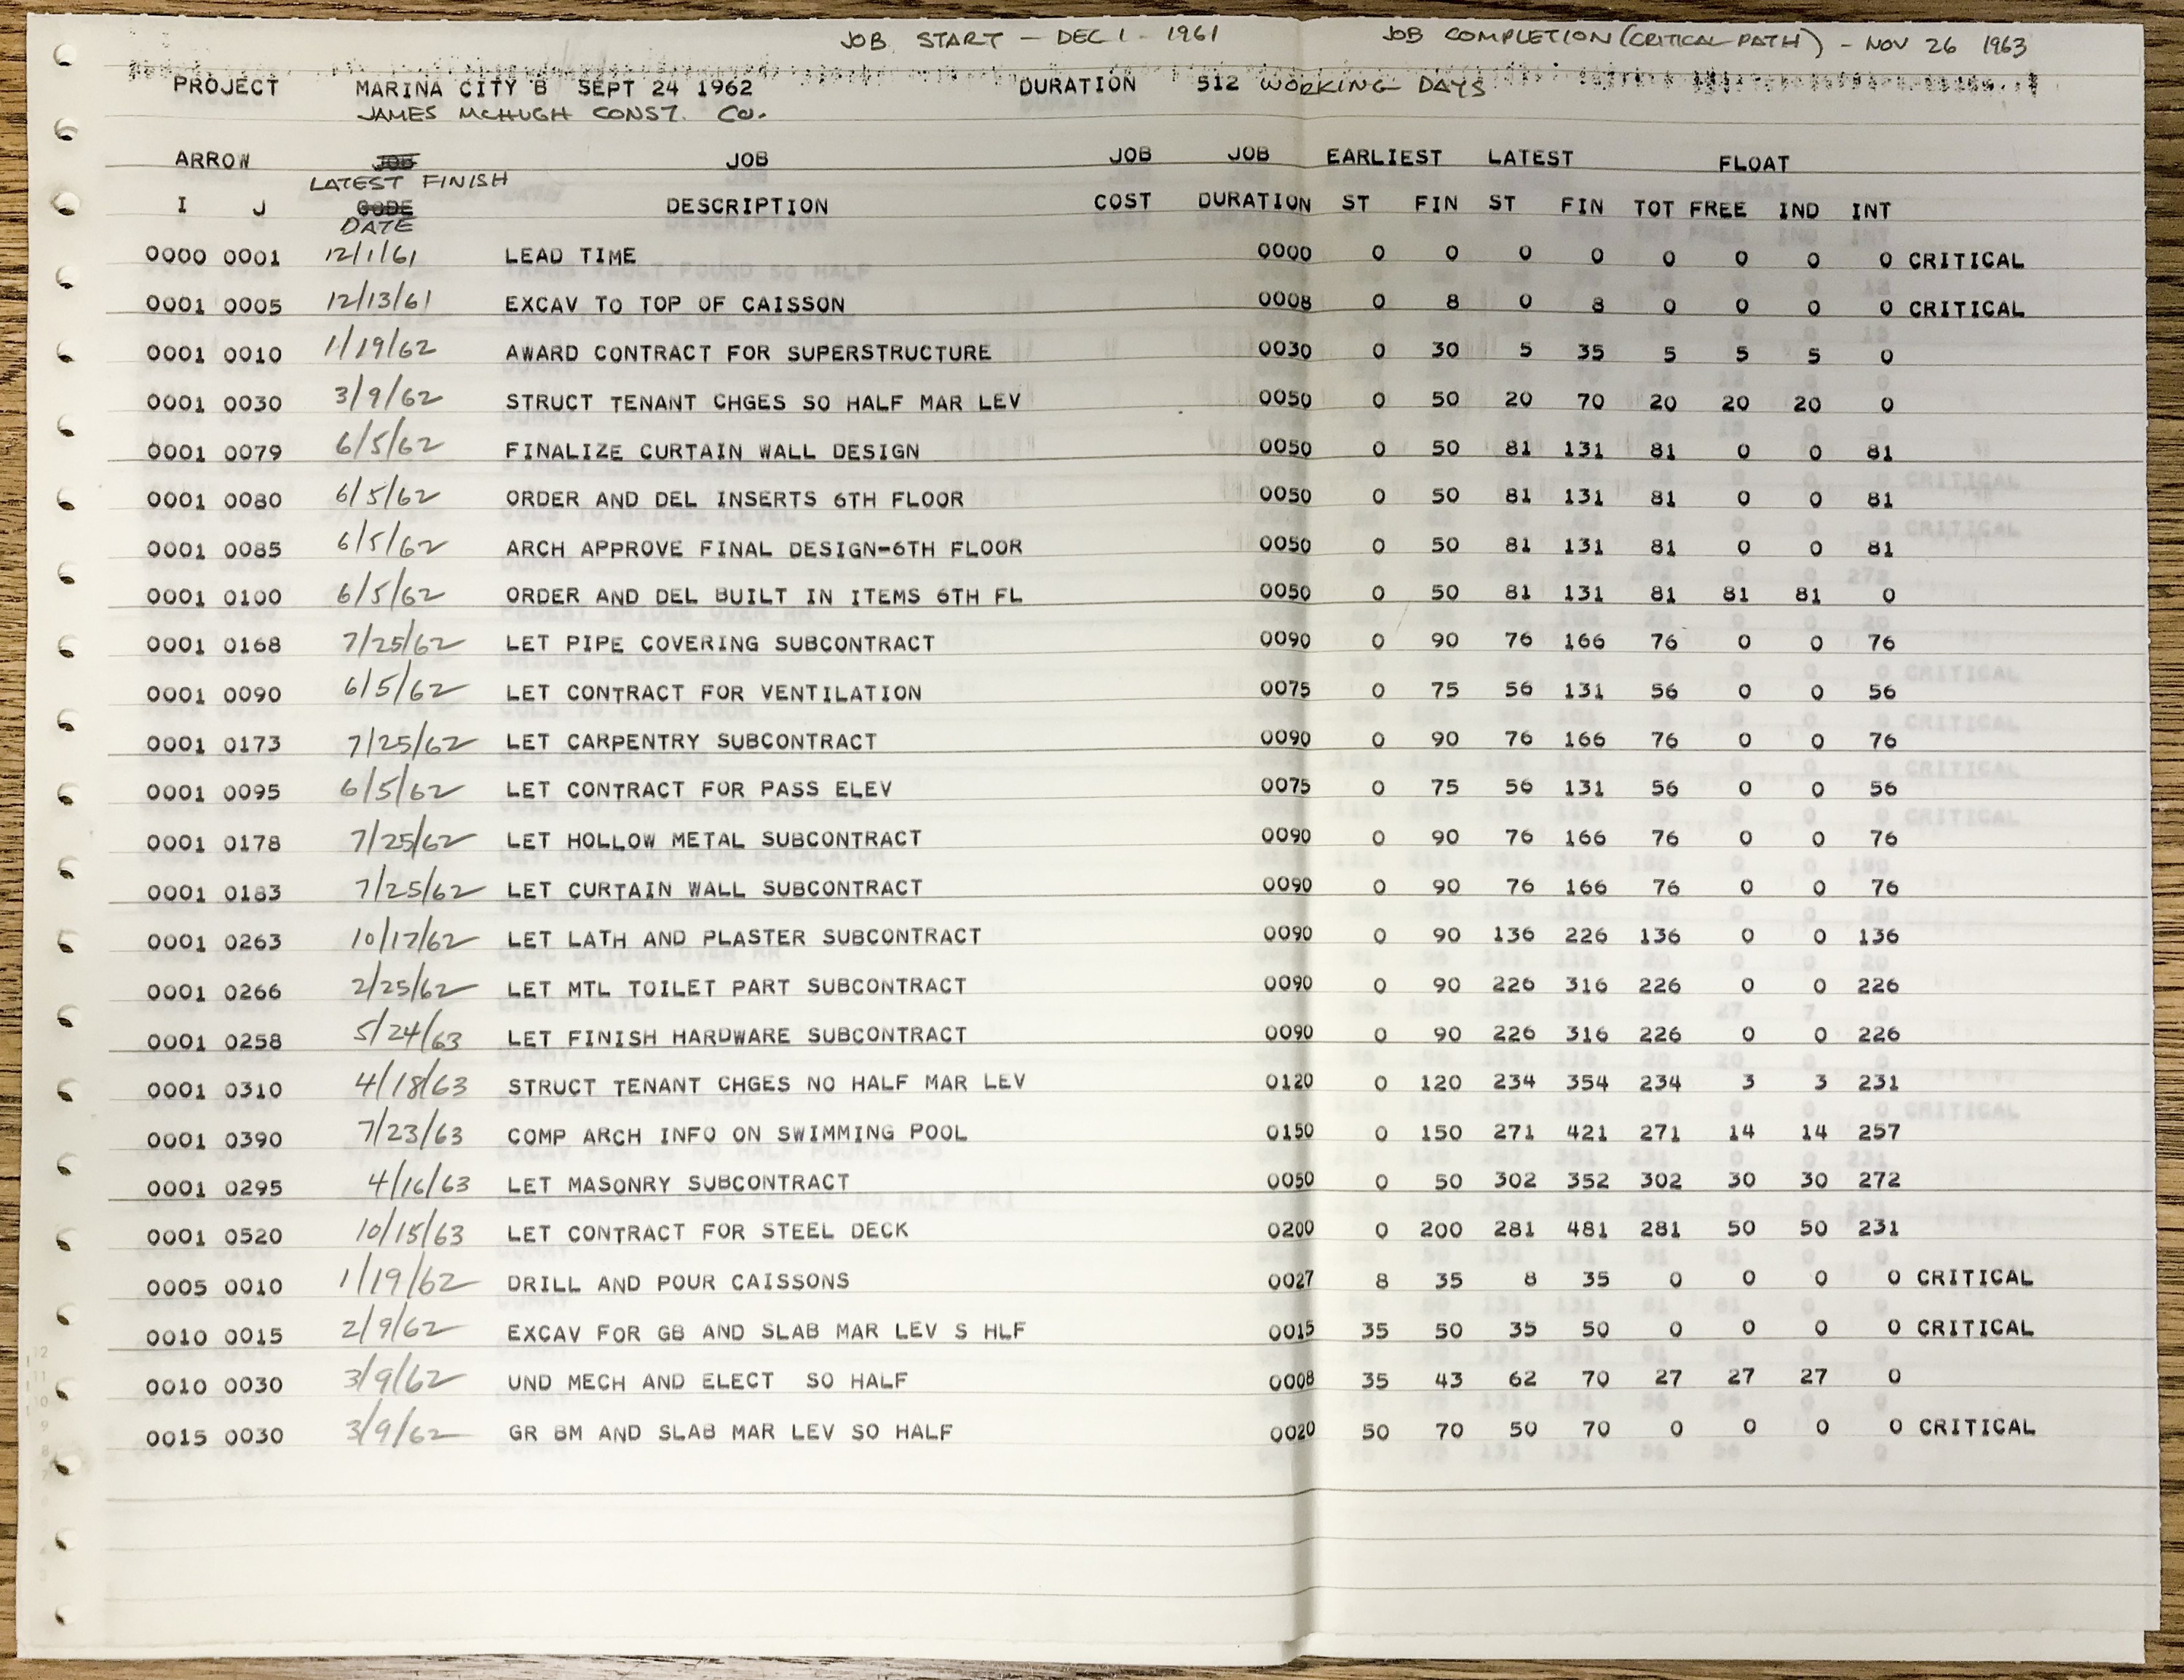 JOB START - DEC 1 - 1961 JOB COMPLETION (CRITICAL PATH) - NOV 26 1963
PROJECT MARINA CITY B SEPT 24 1962 DURATION 512 WORKING DAYS
JAMES MCHUGH CONST. CO.
ARROW JOB JOB JOB JOB EARLIEST LATEST FLOAT
LATEST FINISH
I J CODE DESCRIPTION COST DURATION ST FIN ST FIN TOT FREE IND INT
DATE
0000 0001 12/1/61 LEAD TIME 0000 0 0 0 0 0 0 0 0 CRITICAL
0001 0005 12/13/61 EXCAV TO TOP OF CAISSON 0008 0 8 0 8 0 0 0 0 CRITICAL
0001 0010 1/19/62 AWARD CONTRACT FOR SUPERSTRUCTURE 0030 0 30 5 35 5 5 5 0
0001 0030 3/9/62 STRUCT TENANT CHGES SO HALF MAR LEV 0050 0 50 20 70 20 20 20 0
0001 0079 6/5/62 FINALIZE CURTAIN WALL DESIGN 0050 0 50 81 131 81 0 0 81
0001 0080 6/5/62 ORDER AND DEL INSERTS 6TH FLOOR 0050 0 50 81 131 81 0 0 81
0001 0085 6/5/62 ARCH APPROVE FINAL DESIGN-6TH FLOOR 0050 0 50 81 131 81 0 0 81
0001 0100 6/5/62 ORDER AND DEL BUILT IN ITEMS 6TH FL 0050 0 50 81 131 81 81 81 0
0001 0168 7/25/62 LET PIPE COVERING SUBCONTRACT 0090 0 90 76 166 76 0 0 76
0001 0090 6/5/62 LET CONTRACT FOR VENTILATION 0075 0 75 56 131 56 0 0 56
0001 0173 7/25/62 LET CARPENTRY SUBCONTRACT 0090 0 90 76 166 76 0 0 76
0001 0095 6/5/62 LET CONTRACT FOR PASS ELEV 0075 0 75 56 131 56 0 0 56
0001 0178 7/25/62 LET HOLLOW METAL SUBCONTRACT 0090 0 90 76 166 76 0 0 76
0001 0183 7/25/62 LET CURTAIN WALL SUBCONTRACT 0090 0 90 76 166 76 0 0 76
0001 0263 10/17/62 LET LATH AND PLASTER SUBCONTRACT 0090 0 90 136 226 136 0 0 136
0001 0266 2/25/62 LET MTL TOILET PART SUBCONTRACT 0090 0 90 226 316 226 0 0 226
0001 0258 5/24/63 LET FINISH HARDWARE SUBCONTRACT 0090 0 90 226 316 226 0 0 226
0001 0310 4/18/63 STRUCT TENANT CHGES NO HALF MAR LEV 0120 0 120 234 354 234 3 3 231
0001 0390 7/23/63 COMP ARCH INFO ON SWIMMING POOL 0150 0 150 271 421 271 14 14 257
0001 0295 4/16/63 LET MASONRY SUBCONTRACT 0050 0 50 302 352 302 30 30 272
0001 0520 10/15/63 LET CONTRACT FOR STEEL DECK 0200 0 200 281 481 281 50 50 231
0005 0010 1/19/62 DRILL AND POUR CAISSONS 0027 8 35 8 35 0 0 0 0 CRITICAL
0010 0015 2/9/62 EXCAV FOR GB AND SLAB MAR LEV S HLF 0015 35 50 35 50 0 0 0 0 CRITICAL
0010 0030 3/9/62 UND MECH AND ELECT SO HALF 0008 35 43 62 70 27 27 27 0
0015 0030 3/9/62 GR BM AND SLAB MAR LEV SO HALF 0020 50 70 50 70 0 0 0 0 CRITICAL